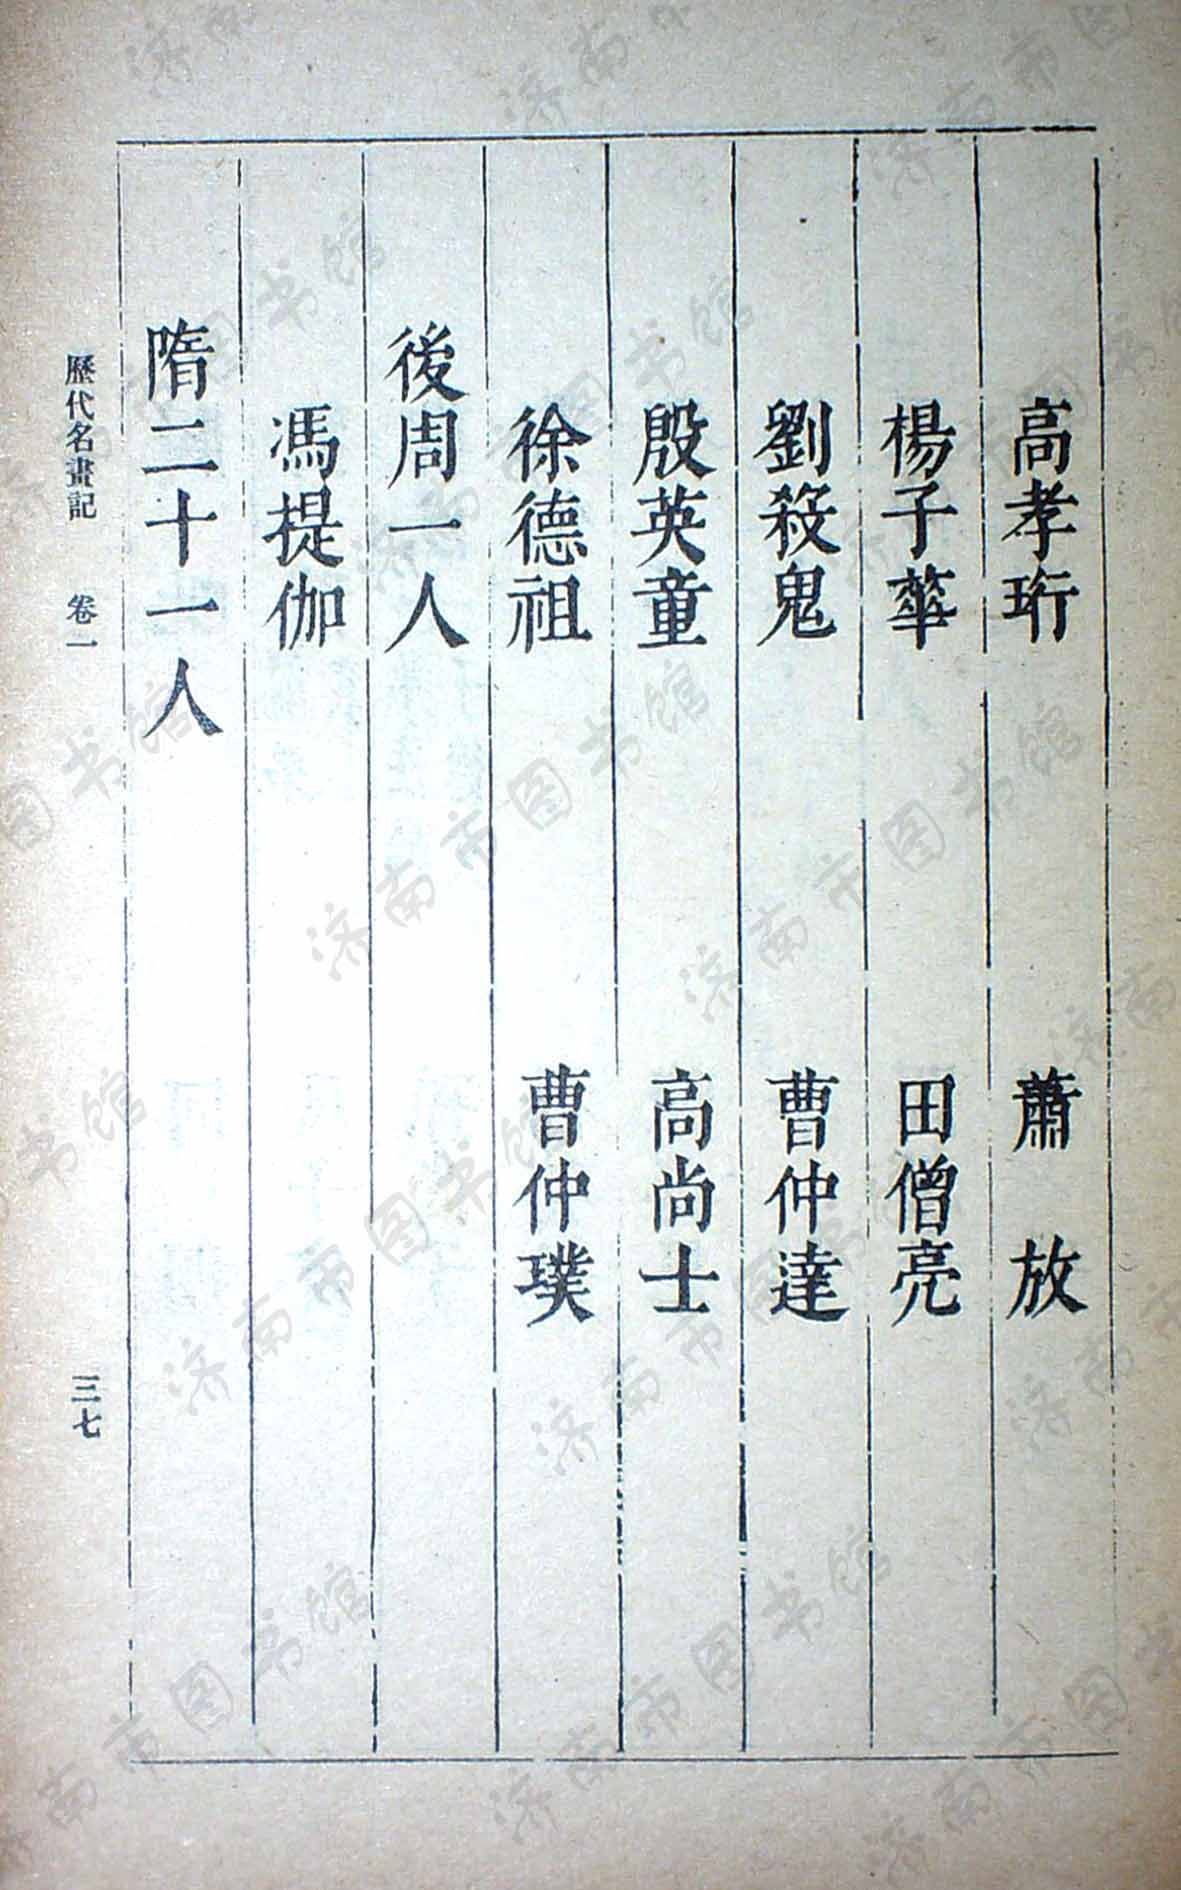 高孝珩 蕭放
楊子華 田僧亮
劉殺鬼 曹仲達
殷英童 高尚士
徐德祖 曹仲璞
後周一人
馮提伽
隋二十一人
歷代名畫記 卷一 三七
济南市图书馆